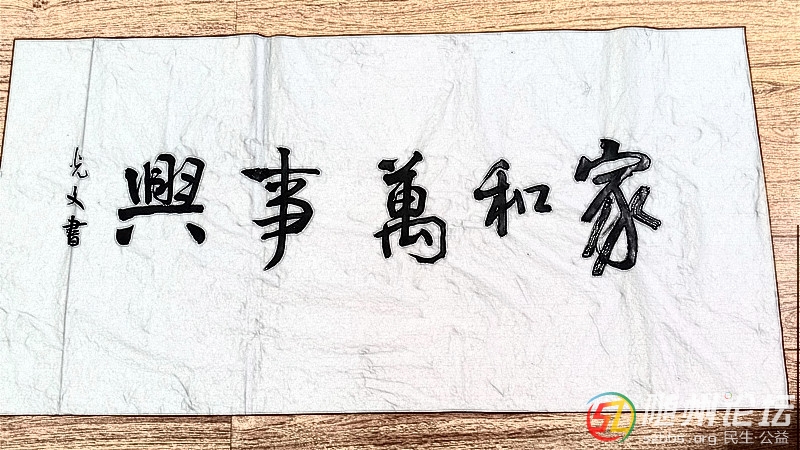 家和萬事興
光文書
随州论坛
szbbs.org 民生·公益